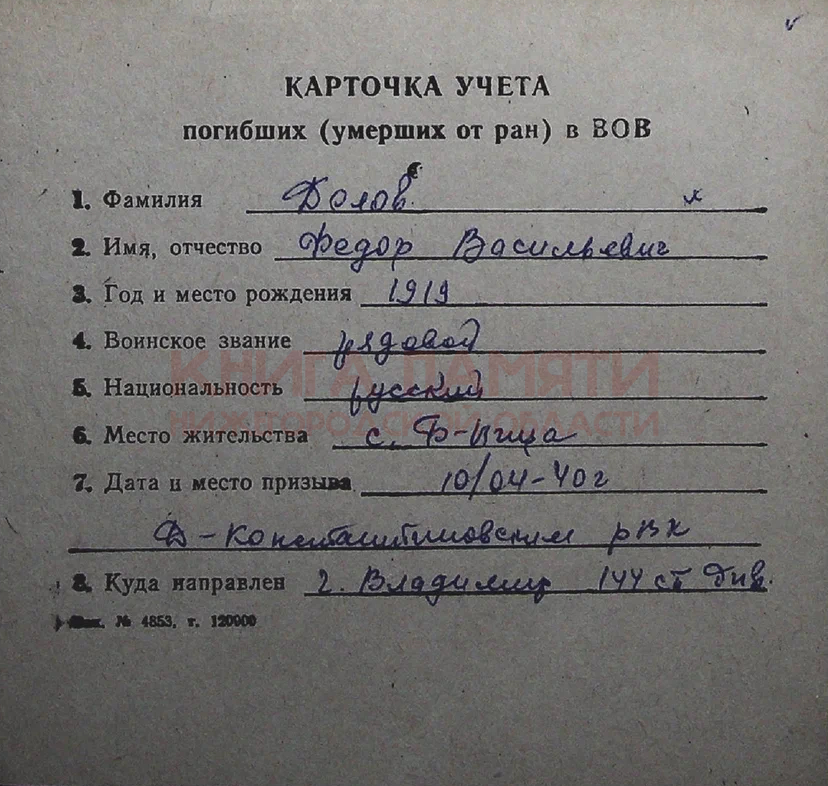 КАРТОЧКА УЧЕТА
погибших (умерших от ран) в ВОВ
1. Фамилия Долов
2. Имя, отчество Федор Васильевич
3. Год и место рождения 1919
4. Воинское звание рядовой
5. Национальность русский
КНИГА ПАМЯТИ
НИЖЕГОРОДСКОЙ ОБЛАСТИ
6. Место жительства с.
7. Дата и место призыва 10/04-40г
Д-Константиновским рвк
8. Куда направлен г. Владимир 144 ст див.
№ 4853, т. 120000